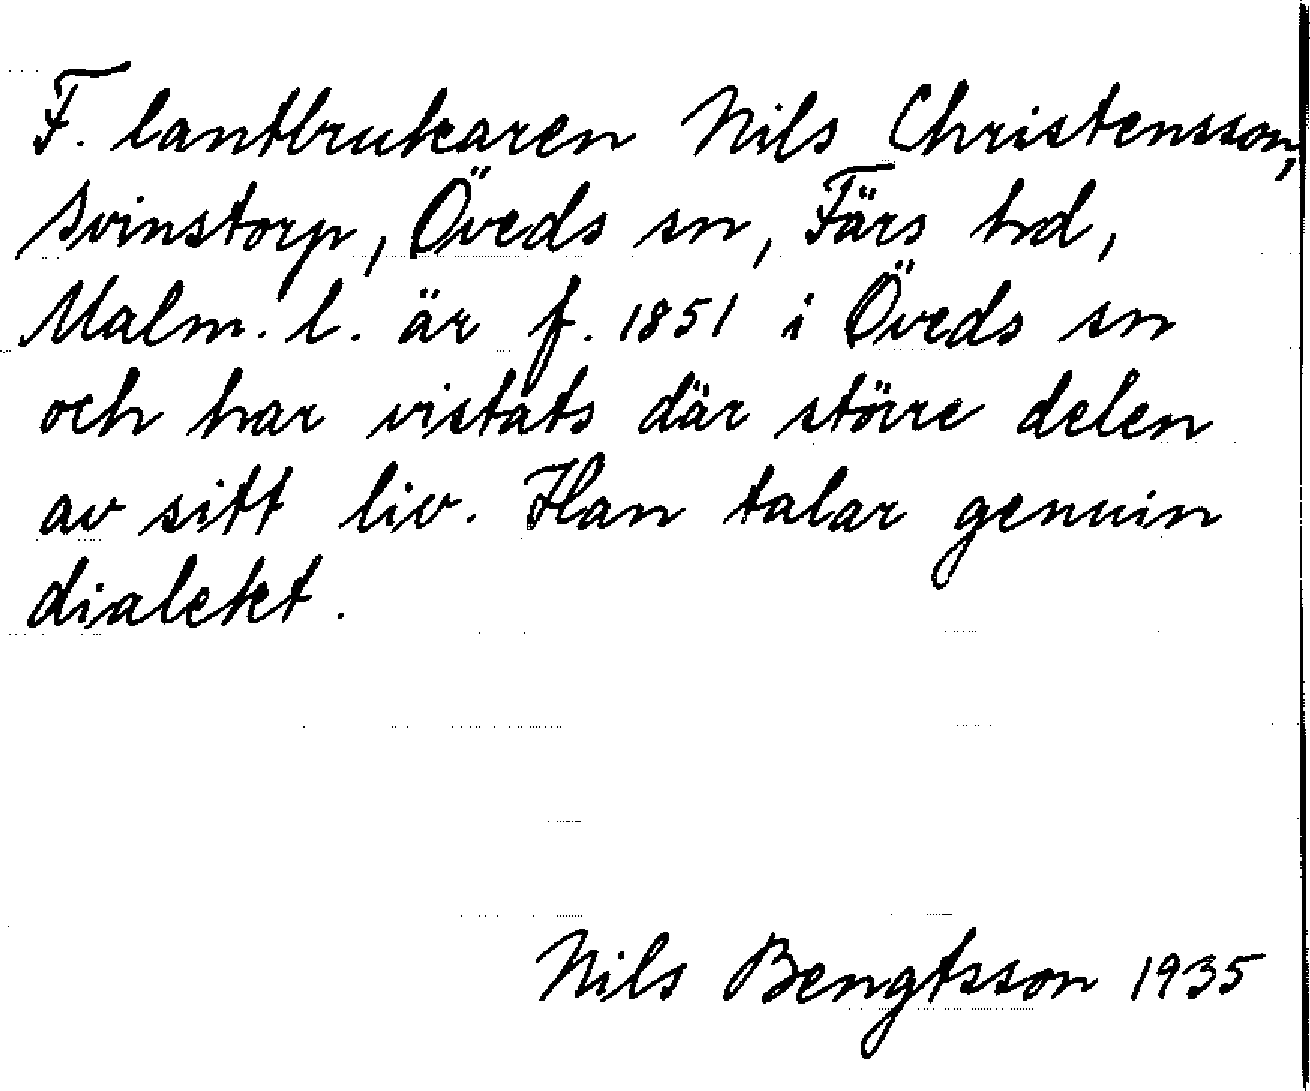 F. lantbrukaren Nils Christensson,
Svinstorp, Öveds sn, Färs hd,
Malm. l. är f. 1851 i Öveds sn
och har vistats där större delen
av sitt liv. Han talar genuin
dialekt.
Nils Bengtsson 1935